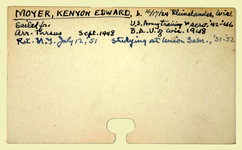 MOYER, KENYON EDWARD, b. 10/17/24 Rhinelander, Wisc.
Sailed for U.S. Army training & serv. '42-'46
Arr. Pursus Sept. 1948 B.A. U. of Wis. 1948
Ret. N.Y. July 12, '51 Studying at Union Sem., '51-'52